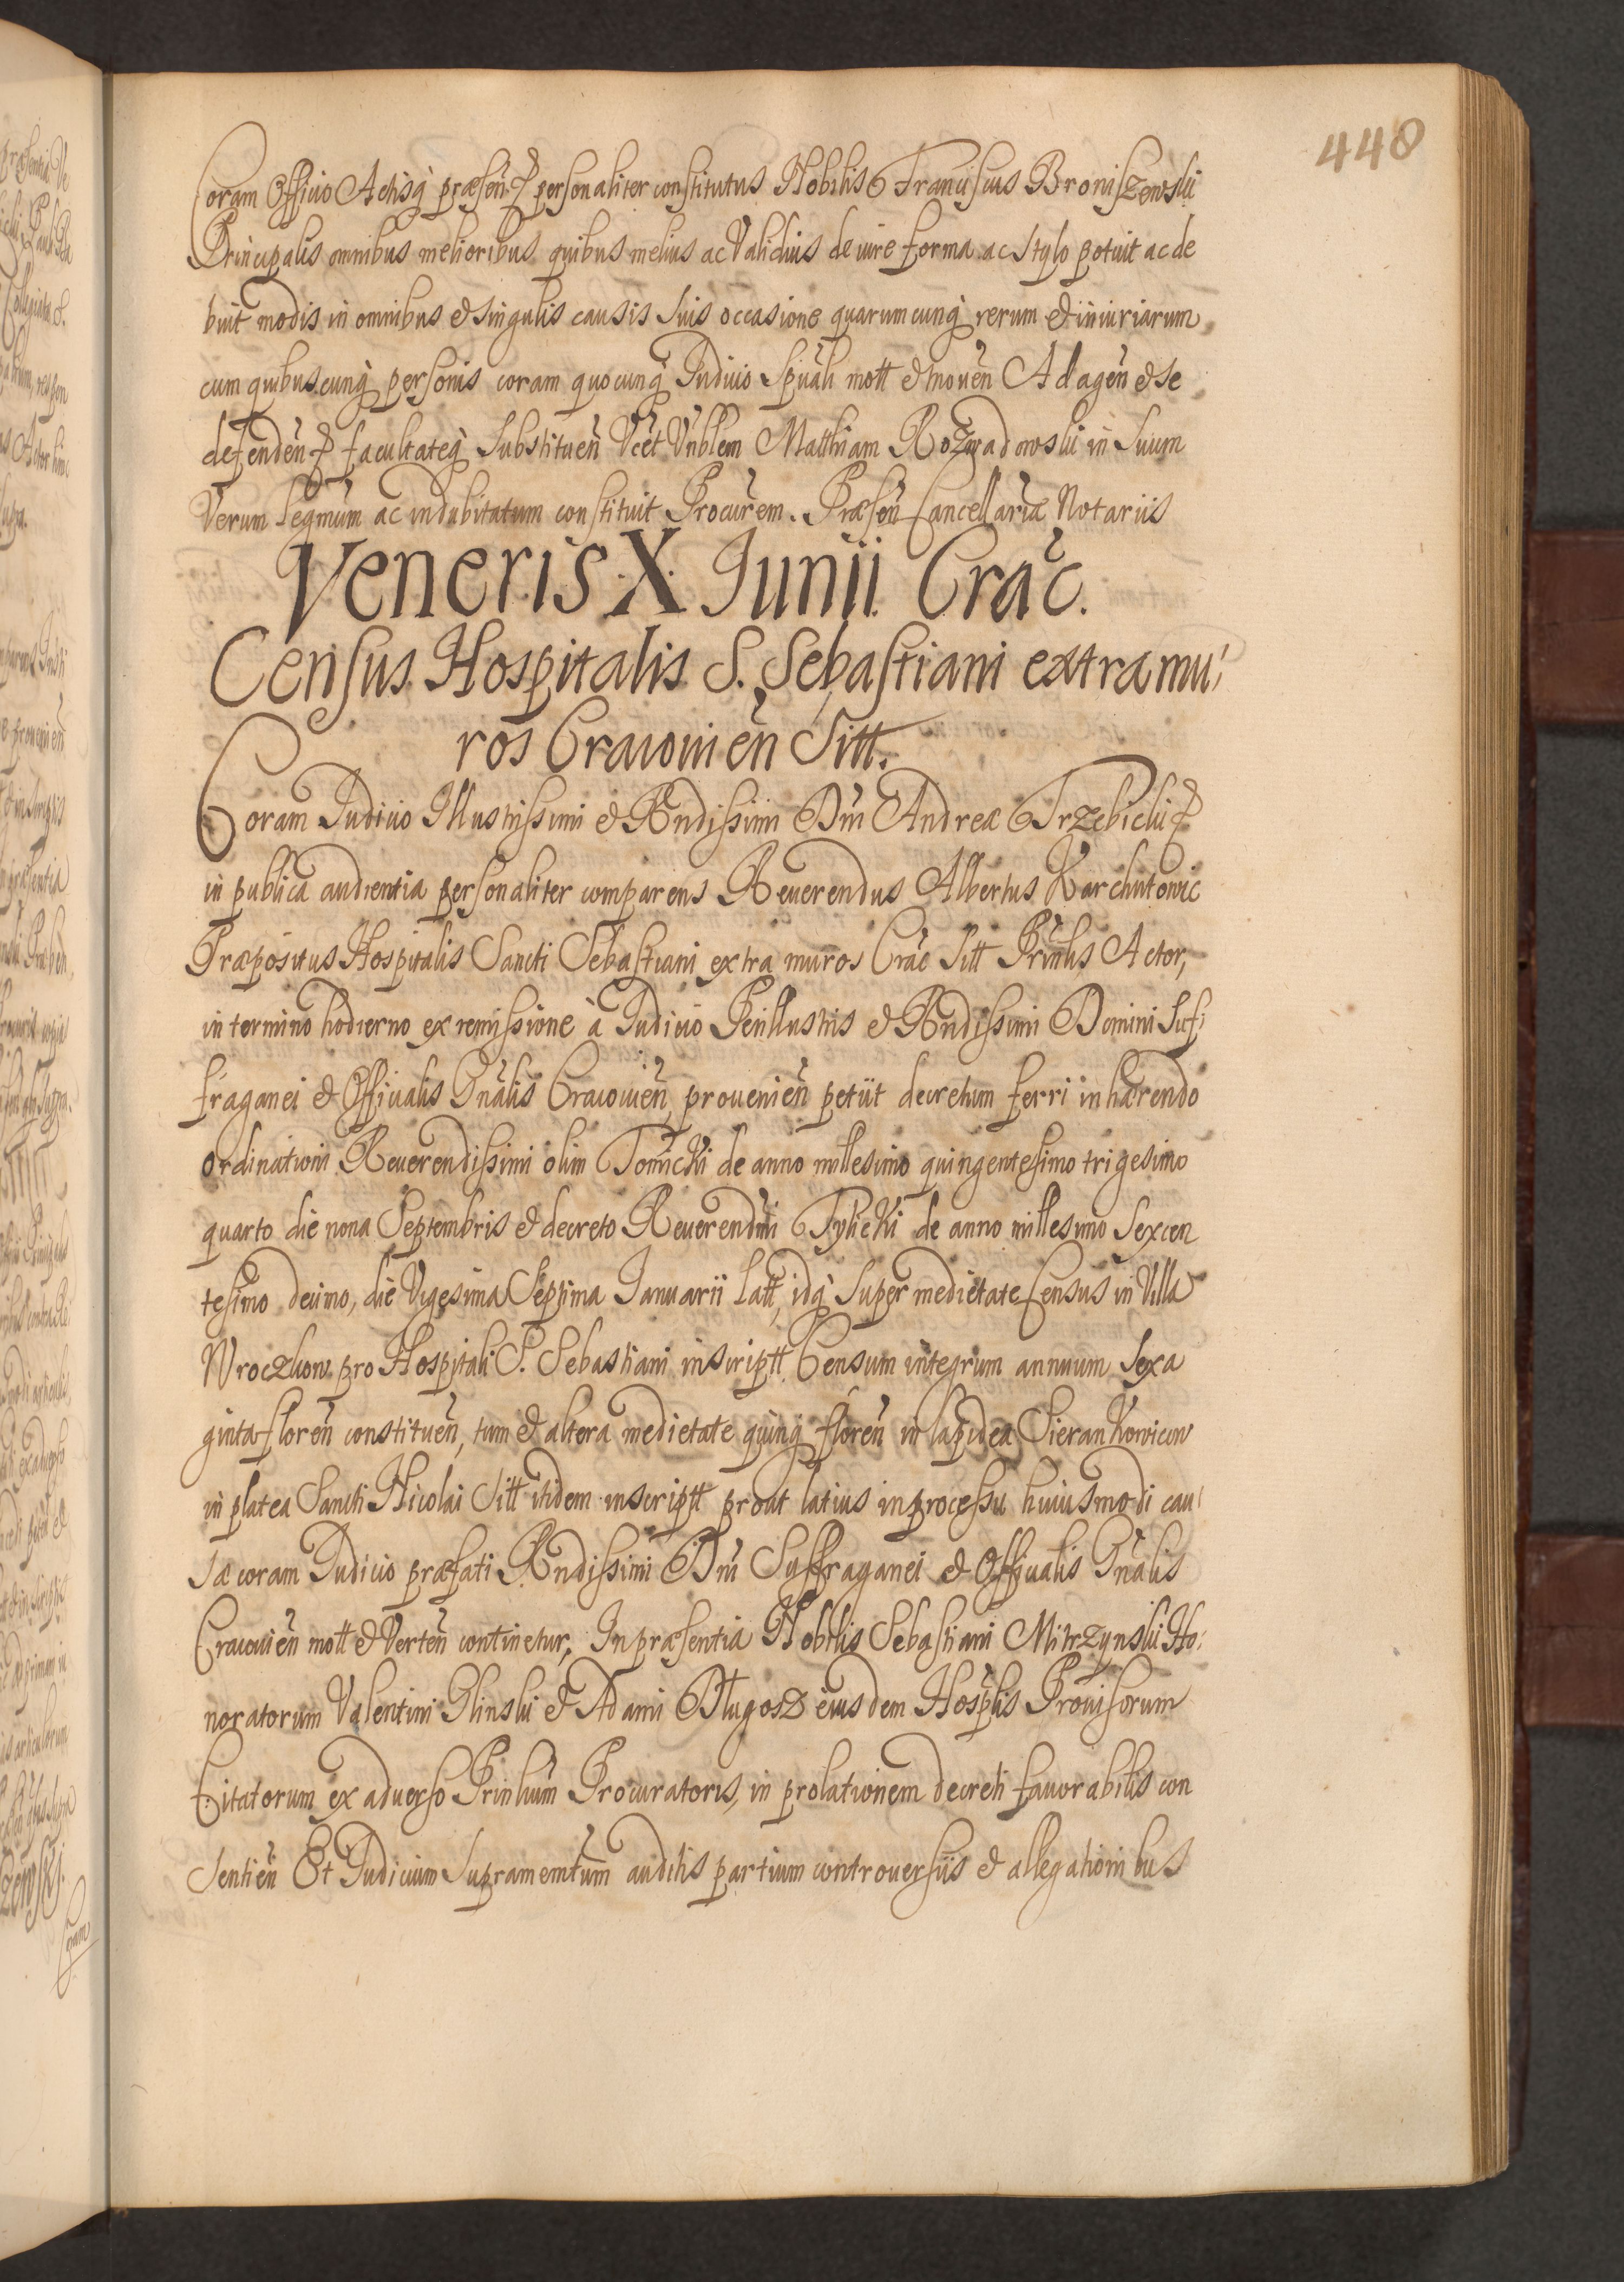 448
Coram Officio Actisq̃ præsen̄ &c personaliter constitutus Nobilis Franciscus Broniszewski
Principalis omnibus melioribus quibus melius ac Validius de iure forma ac stylo potuit ac de
buit modis in omnibus & singulis causis suis occasione quarumcunq̃ rerum & iniuriarum
cum quibuscunq̃ personis coram quocunq̃ Judicio Spūali mott & mouen̄ Ad agen̄ & se
defenden̄ &c facultateq̃ Substituen̄ Vcēt Vn̄blem Matthiam Rozwadowski in Suum
Verum legm̄um ac indubitatum constituit Procur̄em. Præsen̄ Cancellariæ Notariis
Veneris X Junii Crac̄.
Census Hospitalis S. Sebastiani extra mu,
ros Cracouien̄ Sitt.
Coram Judicio Illustrissimi & Rndissimi Dn̄i Andreæ Trzebicki &c
in publica audientia personaliter comparens Reuerendus Albertus Karchutowic
Præpositus Hospitalis Sancti Sebastiani extra muros Crac̄ Sitt Prin̄lis Actor,
in termino hodierno ex remissione à Judicio Perillustris & Rndissimi Domini Suf,
fraganei & Officialis Gn̄alis Cracouien̄ prouenien̄ petiit decretum ferri inhærendo
ordinationi Reuerendissimi olim Tomicki de anno millesimo quingentesimo trigesimo
quarto die nona Septembris & decreto Reuerendm̄i Tylicki de anno millesimo Sexcen
tesimo decimo, die Vigesima Septima Januarii Latt, idq̃ Super medietate Census in Villa
Wroczkow pro Hospitali S. Sebastiani inscriptt Censum integrum annuum Sexa
ginta floren̄ constituen̄, tum & altera medietate quinq̃ floren̄ in lapidea Sierankowicow
in platea Sancti Nicolai Sitt itidem inscriptt prout latius in processu huiusmodi cau
sæ coram Judicio præfati Rndissimi Dn̄i Suffraganei & Officialis Gn̄alis
Cracouien̄ mott & Verten̄ continetur, In præsentia Nobilis Sebastiani Mitrzynski Ho:
noratorum Valentini Glinski & Adami Długosz eiusdem Hosp̄lis Prouisorum
Citatorum ex aduerso Prin̄lium Procuratoris, in prolationem decreti fauorabilis con
sentien̄ Et Judicium Supramem̄tum auditis partium controuersiis & allegationibus